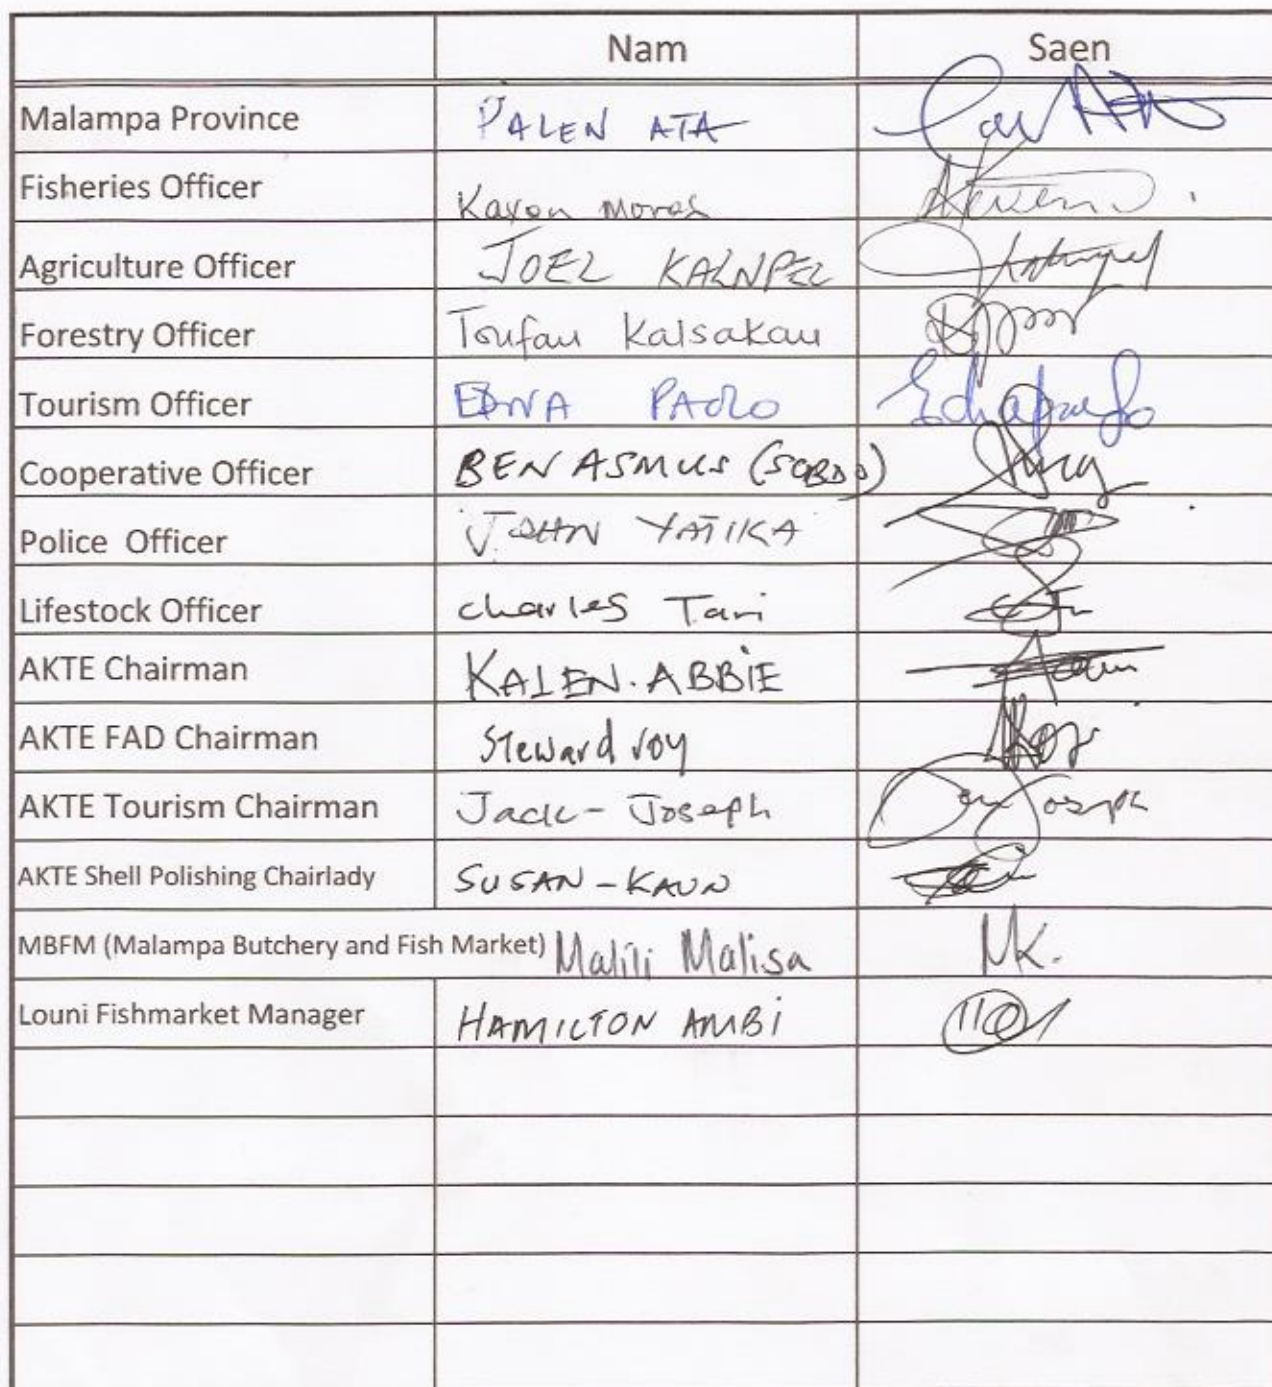 Nam Saen
Malampa Province PALEN ATA
Fisheries Officer Kayon Moros
Agriculture Officer JOEL KALNPEL
Forestry Officer Toufau Kalsakau
Tourism Officer EDNA PAOLO
Cooperative Officer BEN ASMUS (SCBDO)
Police Officer JOHN YATIKA
Lifestock Officer charles Tari
AKTE Chairman KALEN.ABBiE
AKTE FAD Chairman Steward roy
AKTE Tourism Chairman Jack-Joseph
AKTE Shell Polishing Chairlady SUSAN-KAUN
MBFM (Malampa Butchery and Fish Market) Malili Malisa MK.
Louni Fishmarket Manager HAMILTON AMBi